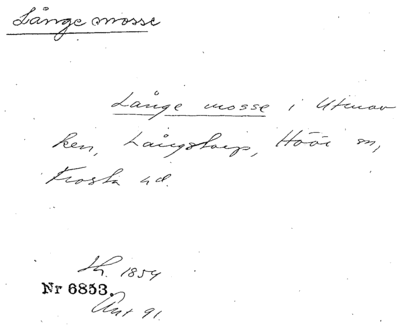 Långe mosse
Långe mosse i Utmar
ken, Långstorp, Höör sn,
Frosta hd.
Sk. 1854
Nr 6853.
Ant 91.